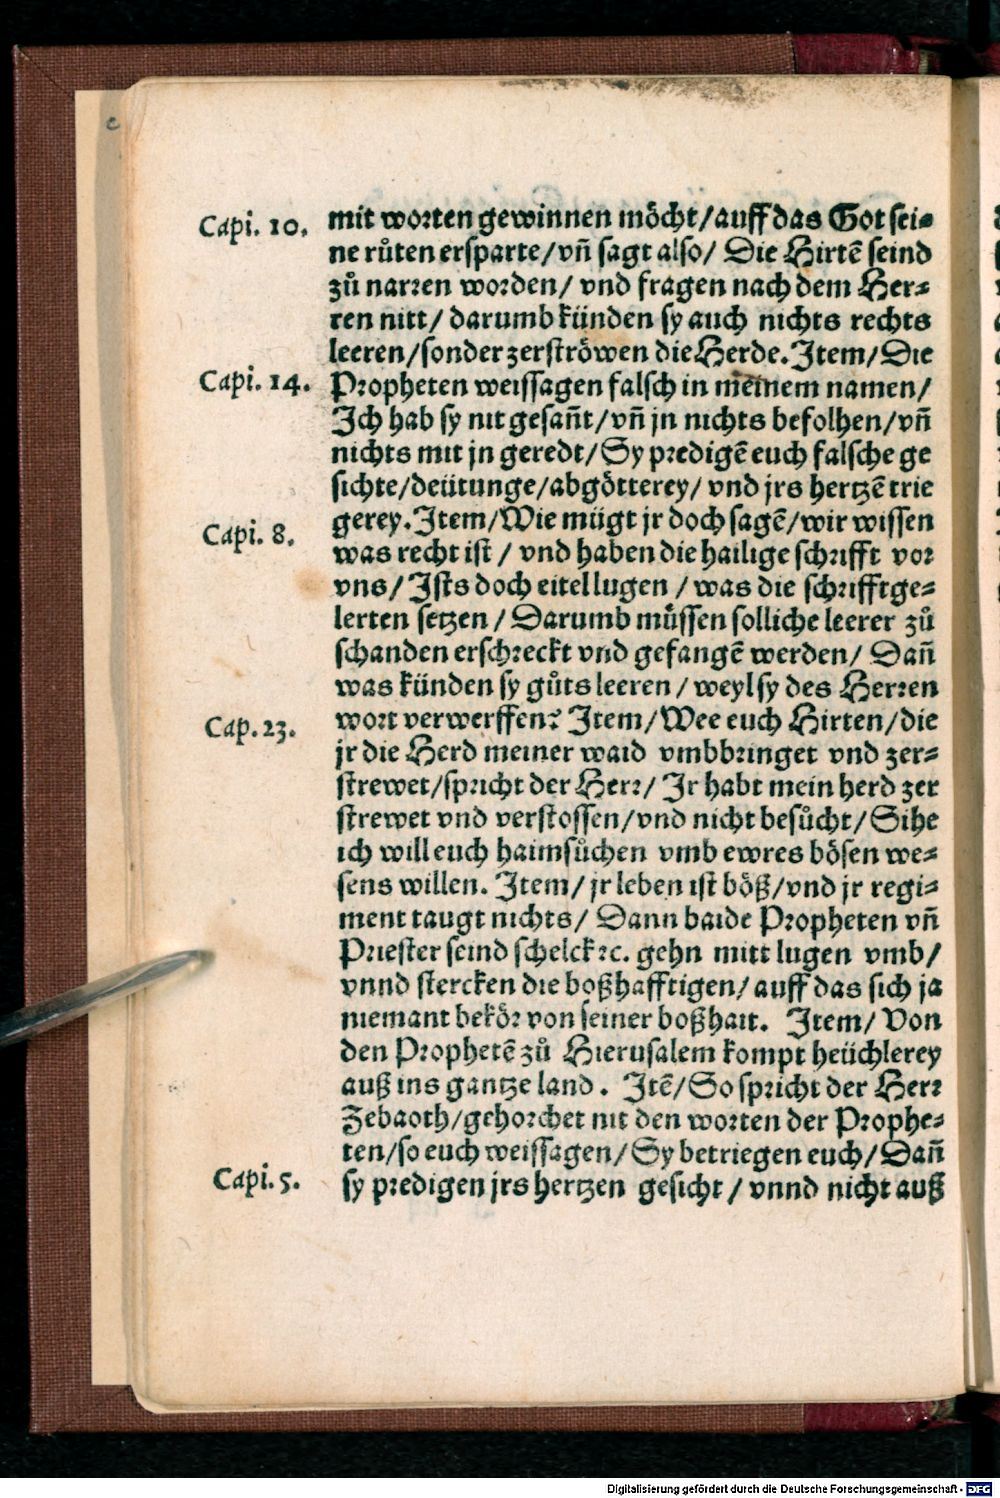 Capi. 10. mit worten gewinnen möcht/auff das Got sei-
ne růten ersparte/vñ sagt also/ Die Hirtẽ seind
zů narren worden/ vnd fragen nach dem Her-
ren nitt/ darumb künden sy auch nichts rechts
leeren/sonder zerströwen die Herde. Item/Die
Capi. 14. Propheten weissagen falsch in meinem namen/
Ich hab sy nit gesañt/vñ jn nichts befolhen/vñ
nichts mit jn geredt/Sy predigẽ euch falsche ge
sichte/deütunge/abgötterey/ vnd jrs hertzẽ trie
Capi. 8. gerey. Item/Wie mügt jr doch sagẽ/wir wissen
was recht ist / vnd haben die hailige schrifft vor
vns/ Ists doch eitel lugen / was die schrifftge-
lerten setzen / Darumb müssen solliche leerer zů
schanden erschreckt vnd gefangẽ werden/ Dañ
was künden sy gůts leeren / weyl sy des Herren
Cap. 23. wort verwerffen? Item/Wee euch Hirten/die
jr die Herd meiner waid vmbbringet vnd zer-
strewet/spricht der Herr/ Ir habt mein herd zer
strewet vnd verstossen/vnd nicht besůcht/Sihe
ich will euch haimsůchen vmb ewres bösen we-
sens willen. Item/ jr leben ist böß/vnd jr regi-
ment taugt nichts/ Dann baide Propheten vñ
Priester seind schelck ꝛc. gehn mitt lugen vmb/
vnnd stercken die boßhafftigen/ auff das sich ja
niemant bekör von seiner boßhait. Item/ Von
den Prophetẽ zů Hierusalem kompt heüchlerey
auß ins gantze land. Itẽ/So spricht der Herr
Zebaoth/gehorchet nit den worten der Prophe-
ten/so euch weissagen/Sy betriegen euch/Dañ
Capi. 5. sy predigen jrs hertzen gesicht / vnnd nicht auß
Digitalisierung gefördert durch die Deutsche Forschungsgemeinschaft - DFG